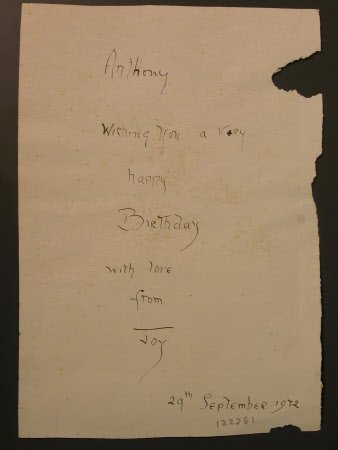 Anthony
Wishing you a very
happy
Birthday
with love
from
Joy
29th September 1972
122281